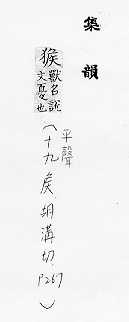 集韻
猴獸名說文夒也
(平聲十九矦.胡溝切.P267)